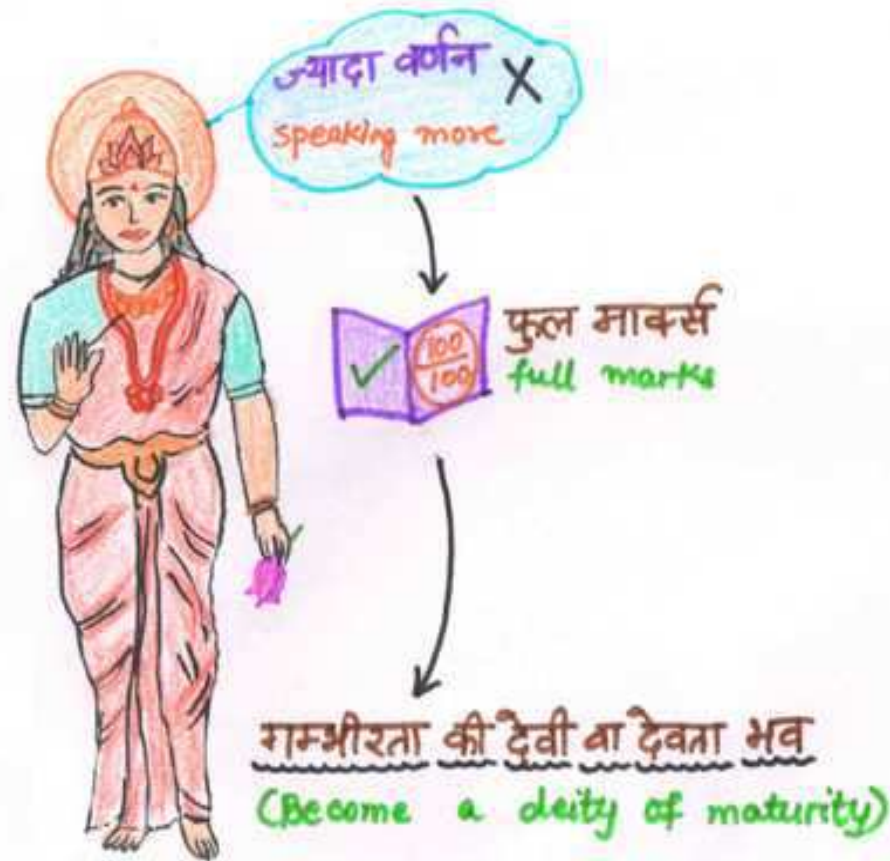 ज्यादा वर्णन X
speaking more
✓ 100/100
फुल मार्क्स
full marks
गम्भीरता की देवी वा देवता भव
(Become a deity of maturity)